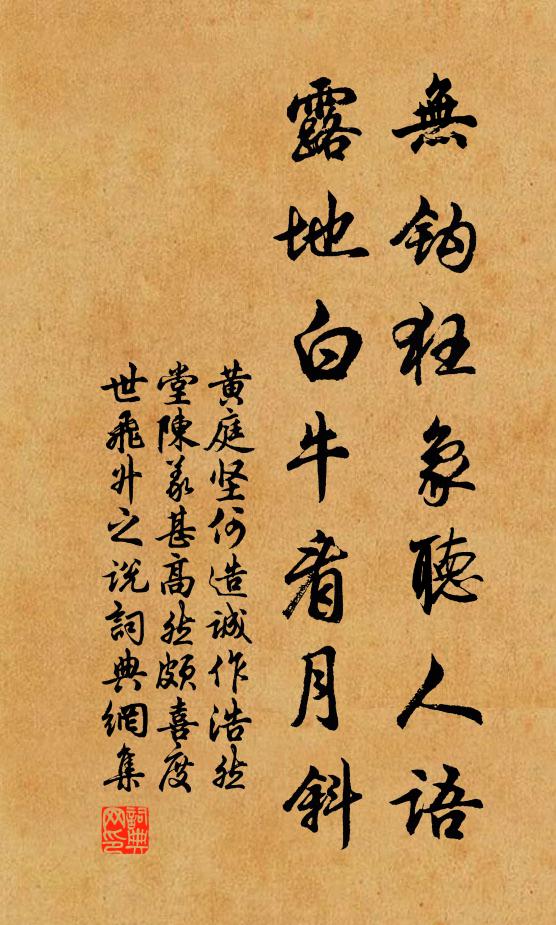 無鈎狂象聽人語
露地白牛看月斜
黄庭坚何造誠作浩然
堂陳義甚高然頗喜度
世飛升之说詞典網集
詞典网印